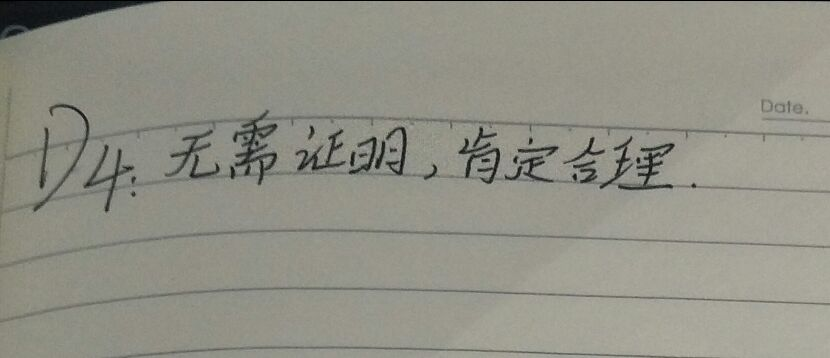 Date.
D4: 无需证明, 肯定合理.